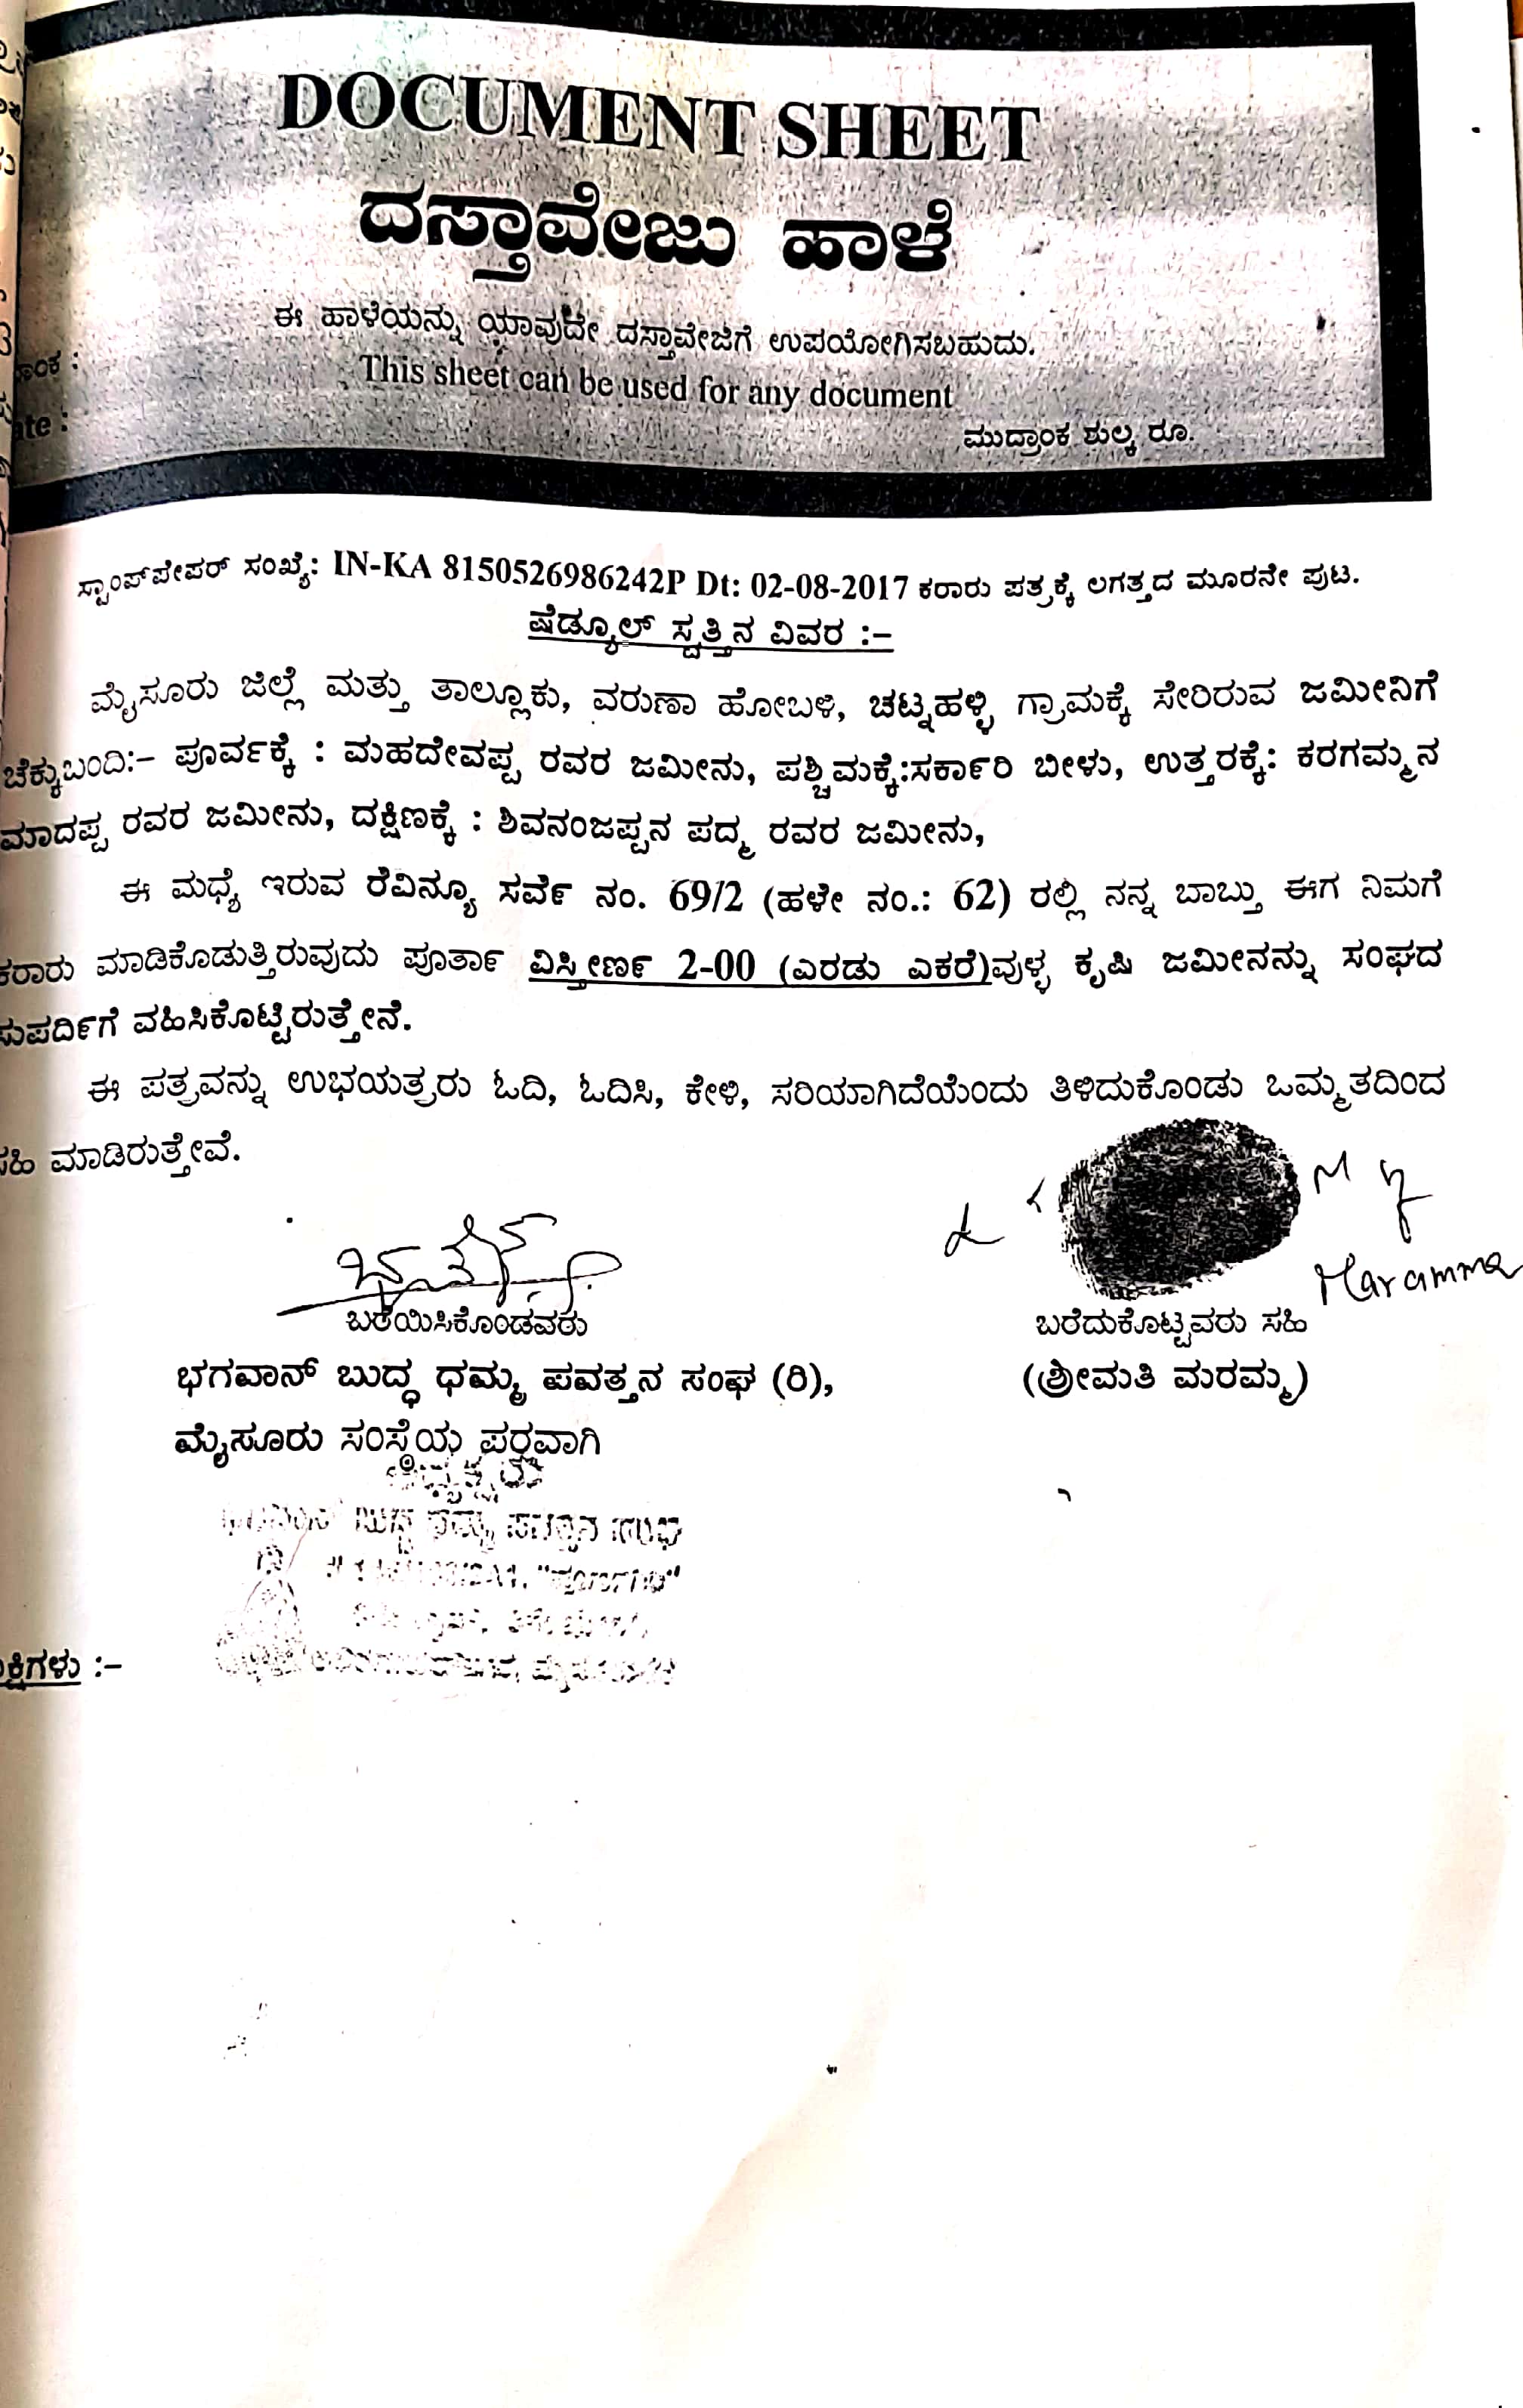 DOCUMENT SHEET
ದಸ್ತಾವೇಜು ಹಾಳೆ
ಈ ಹಾಳೆಯನ್ನು ಯಾವುದೇ ದಸ್ತಾವೇಜಿಗೆ ಉಪಯೋಗಿಸಬಹುದು.
This sheet can be used for any document
ಮುದ್ರಾಂಕ ಶುಲ್ಕ ರೂ.
ಸ್ಟಾಂಪ್‌ಪೇಪರ್ ಸಂಖ್ಯೆ: IN-KA 8150526986242P Dt: 02-08-2017 ಕರಾರು ಪತ್ರಕ್ಕೆ ಲಗತ್ತದ ಮೂರನೇ ಪುಟ.
ಷೆಡ್ಯೂಲ್ ಸ್ವತ್ತಿನ ವಿವರ :–
ಮೈಸೂರು ಜಿಲ್ಲೆ ಮತ್ತು ತಾಲ್ಲೂಕು, ವರುಣಾ ಹೋಬಳಿ, ಚಟ್ನಹಳ್ಳಿ ಗ್ರಾಮಕ್ಕೆ ಸೇರಿರುವ ಜಮೀನಿಗೆ
ಚೆಕ್ಕುಬಂದಿ:– ಪೂರ್ವಕ್ಕೆ : ಮಹದೇವಪ್ಪ ರವರ ಜಮೀನು, ಪಶ್ಚಿಮಕ್ಕೆ:ಸರ್ಕಾರಿ ಬೀಳು, ಉತ್ತರಕ್ಕೆ: ಕರಗಮ್ಮನ
ಮಾದಪ್ಪ ರವರ ಜಮೀನು, ದಕ್ಷಿಣಕ್ಕೆ : ಶಿವನಂಜಪ್ಪನ ಪದ್ಮ ರವರ ಜಮೀನು,
ಈ ಮಧ್ಯೆ ಇರುವ ರೆವಿನ್ಯೂ ಸರ್ವೆ ನಂ. 69/2 (ಹಳೇ ನಂ.: 62) ರಲ್ಲಿ ನನ್ನ ಬಾಬ್ತು ಈಗ ನಿಮಗೆ
ಕರಾರು ಮಾಡಿಕೊಡುತ್ತಿರುವುದು ಪೂರ್ತಾ ವಿಸ್ತೀರ್ಣ 2-00 (ಎರಡು ಎಕರೆ)ವುಳ್ಳ ಕೃಷಿ ಜಮೀನನ್ನು ಸಂಘದ
ಸುಪರ್ದಿಗೆ ವಹಿಸಿಕೊಟ್ಟಿರುತ್ತೇನೆ.
ಈ ಪತ್ರವನ್ನು ಉಭಯತ್ರರು ಓದಿ, ಓದಿಸಿ, ಕೇಳಿ, ಸರಿಯಾಗಿದೆಯೆಂದು ತಿಳಿದುಕೊಂಡು ಒಮ್ಮತದಿಂದ
ಸಹಿ ಮಾಡಿರುತ್ತೇವೆ.
Maramma
ಬರೆಯಿಸಿಕೊಂಡವರು
ಬರೆದುಕೊಟ್ಟವರು ಸಹಿ
ಭಗವಾನ್ ಬುದ್ಧ ಧಮ್ಮ ಪವತ್ತನ ಸಂಘ (ರಿ),
(ಶ್ರೀಮತಿ ಮರಮ್ಮ)
ಮೈಸೂರು ಸಂಸ್ಥೆಯ ಪರವಾಗಿ
ಅಧ್ಯಕ್ಷರು